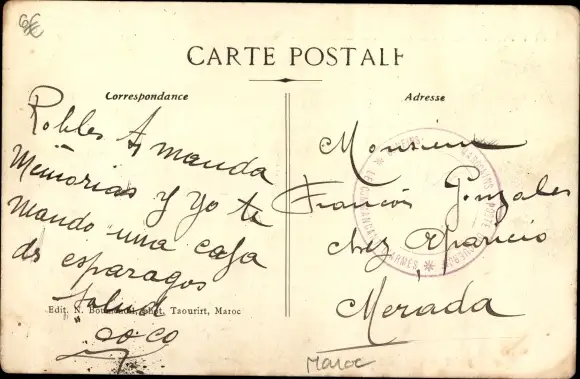 6€
CARTE POSTALE
Correspondance
Robles Amanda
Memorias y yo te
mando una caja
de esparagos
Salud
Coco
Edit. N. phot. Taourirt, Maroc
Adresse
Monsieur
Francois Gonzales
chez Aparicio
Merada
Maroc